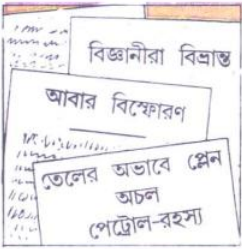 বিজ্ঞানীরা বিভ্রান্ত
আবার বিস্ফোরণ
তেলের অভাবে প্লেন
অচল
পেট্রোল-রহস্য